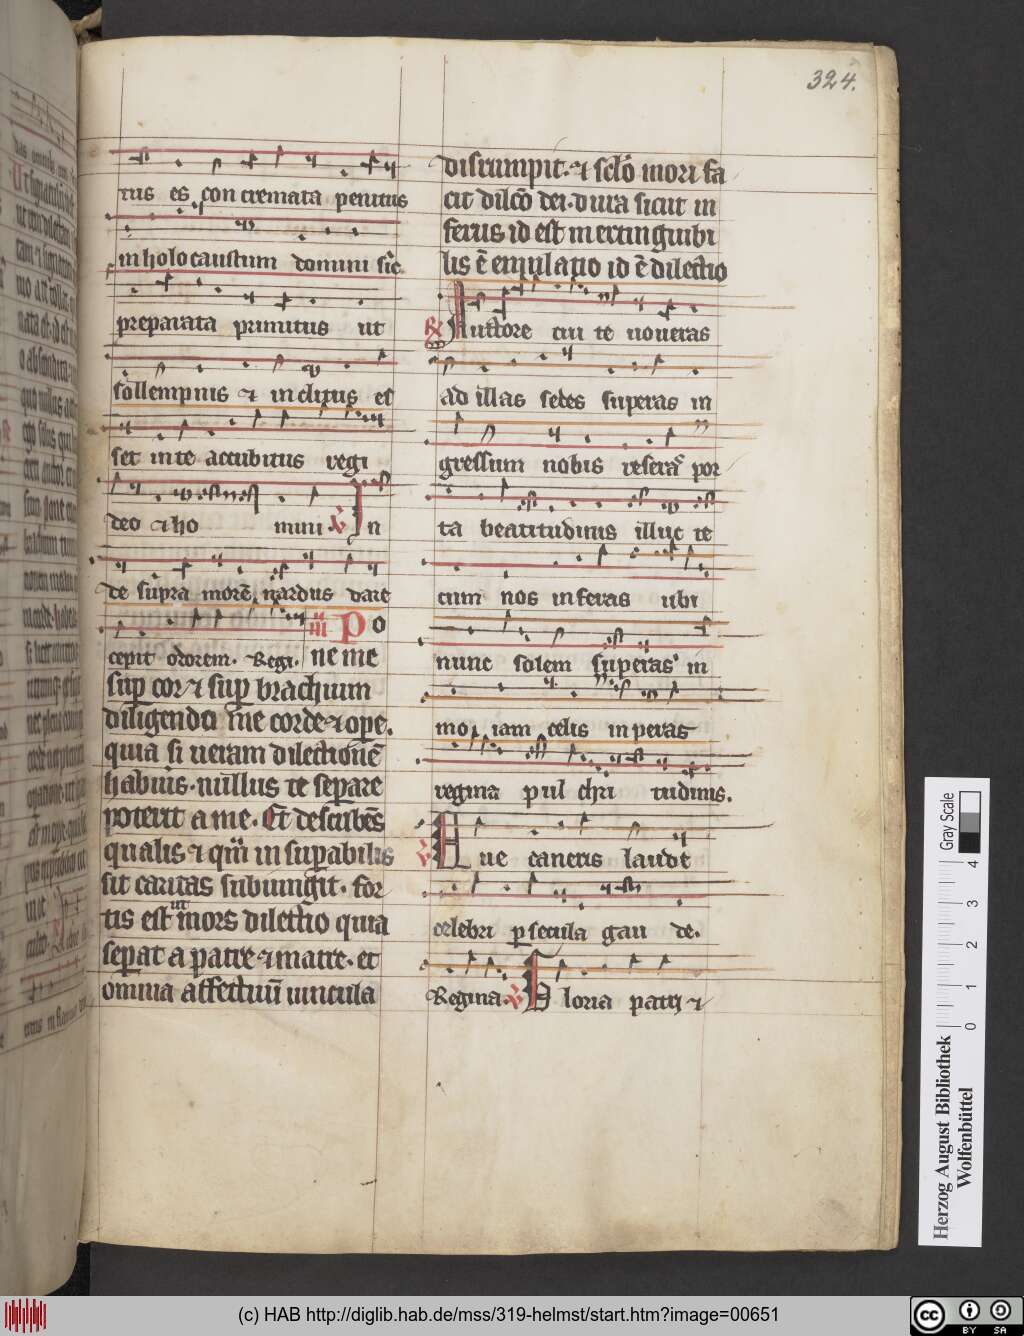 324.
tus es con cremata penitus
in holocaustum domini sic
preparata primitus ut
sollempnis & in clitus es
set in te accubitus regi
deo & ho mini ℣ In
de supra morē nardus dare
cepit odorem. Regi. iii Po
ne me
sup cor & sup brachium
diligendo me corde & ope.
quia si ueram dilectionē
habuis. nullus te separe
poterit a me. Et describēs
qualis & qm̄ insupabilis
sit caritas subiungit. for
tis est ut mors dilectio quia
sepat a patre & matre. et
omnia affectuū uincula
disrumpit. & sclō mori fa
cit dilcō dei. dura sicut in
ferus id est inextinguibi
lis ē emulatio id ē dilectio
℟ Auctore cui te noueras
ad illas sedes superas in
gressum nobis reseras por
ta beatitudinis illuc te
cum nos inferas ubi
nunc solem superas in
mo iam celis inperas
regina pul chri tudinis.
℣ Aue caneris laude
celebri p secula gau de.
Regina. ℣ Gloria patri &
Gray Scale
0 1 2 3 4
Herzog August Bibliothek
Wolfenbüttel
(c) HAB http://diglib.hab.de/mss/319-helmst/start.htm?image=00651
cc BY SA